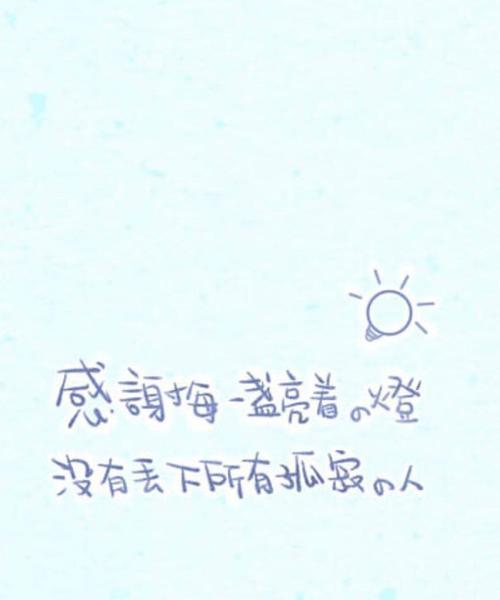 感謝每一盏亮着の燈
没有丟下所有孤寂の人